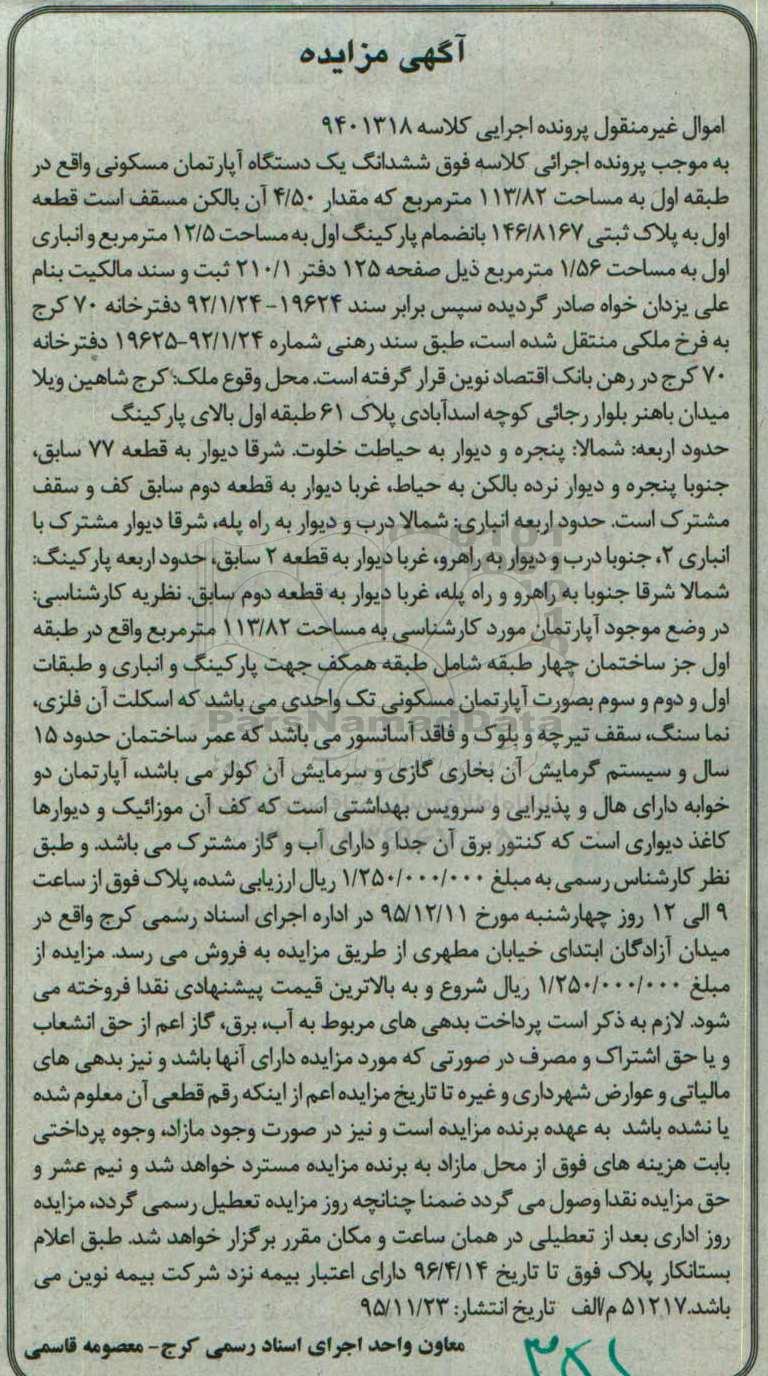 آگهی مزایده
اموال غیرمنقول پرونده اجرایی کلاسه ۹۴۰۱۳۱۸
به موجب پرونده اجرائی کلاسه فوق ششدانگ یک دستگاه آپارتمان مسکونی واقع در
طبقه اول به مساحت ۱۱۳/۸۲ مترمربع که مقدار ۴/۵۰ آن بالکن مسقف است قطعه
اول به پلاک ثبتی ۱۴۶/۸۱۶۷ بانضمام پارکینگ اول به مساحت ۱۲/۵ مترمربع و انباری
اول به مساحت ۱/۵۶ مترمربع ذیل صفحه ۱۲۵ دفتر ۲۱۰/۱ ثبت و سند مالکیت بنام
علی یزدان خواه صادر گردیده سپس برابر سند ۱۹۶۲۴- ۹۲/۱/۲۴ دفترخانه ۷۰ کرج
به فرخ ملکی منتقل شده است، طبق سند رهنی شماره ۹۲/۱/۲۴-۱۹۶۲۵ دفترخانه
۷۰ کرج در رهن بانک اقتصاد نوین قرار گرفته است. محل وقوع ملک: کرج شاهین ویلا
میدان باهنر بلوار رجائی کوچه اسدآبادی پلاک ۶۱ طبقه اول بالای پارکینگ
حدود اربعه: شمالا: پنجره و دیوار به حیاطت خلوت. شرقا دیوار به قطعه ۷۷ سابق،
جنوبا پنجره و دیوار نرده بالکن به حیاط، غربا دیوار به قطعه دوم سابق کف و سقف
مشترک است. حدود اربعه انباری: شمالا درب و دیوار به راه پله، شرقا دیوار مشترک با
انباری ۲، جنوبا درب و دیوار به راهرو، غربا دیوار به قطعه ۲ سابق، حدود اربعه پارکینگ:
شمالا شرقا جنوبا به راهرو و راه پله، غربا دیوار به قطعه دوم سابق. نظریه کارشناسی:
در وضع موجود آپارتمان مورد کارشناسی به مساحت ۱۱۳/۸۲ مترمربع واقع در طبقه
اول جز ساختمان چهار طبقه شامل طبقه همکف جهت پارکینگ و انباری و طبقات
اول و دوم و سوم بصورت آپارتمان مسکونی تک واحدی می باشد که اسکلت آن فلزی،
نما سنگ، سقف تیرچه و بلوک و فاقد آسانسور می باشد که عمر ساختمان حدود ۱۵
سال و سیستم گرمایش آن بخاری گازی و سرمایش آن کولر می باشد، آپارتمان دو
خوابه دارای هال و پذیرایی و سرویس بهداشتی است که کف آن موزائیک و دیوارها
کاغذ دیواری است که کنتور برق آن جدا و دارای آب و گاز مشترک می باشد. و طبق
نظر کارشناس رسمی به مبلغ ۱/۲۵۰/۰۰۰/۰۰۰ ریال ارزیابی شده، پلاک فوق از ساعت
۹ الی ۱۲ روز چهارشنبه مورخ ۹۵/۱۲/۱۱ در اداره اجرای اسناد رسمی کرج واقع در
میدان آزادگان ابتدای خیابان مطهری از طریق مزایده به فروش می رسد. مزایده از
مبلغ ۱/۲۵۰/۰۰۰/۰۰۰ ریال شروع و به بالاترین قیمت پیشنهادی نقدا فروخته می
شود. لازم به ذکر است پرداخت بدهی های مربوط به آب، برق، گاز اعم از حق انشعاب
و یا حق اشتراک و مصرف در صورتی که مورد مزایده دارای آنها باشد و نیز بدهی های
مالیاتی و عوارض شهرداری و غیره تا تاریخ مزایده اعم از اینکه رقم قطعی آن معلوم شده
یا نشده باشد به عهده برنده مزایده است و نیز در صورت وجود مازاد، وجوه پرداختی
بابت هزینه های فوق از محل مازاد به برنده مزایده مسترد خواهد شد و نیم عشر و
حق مزایده نقدا وصول می گردد ضمنا چنانچه روز مزایده تعطیل رسمی گردد، مزایده
روز اداری بعد از تعطیلی در همان ساعت و مکان مقرر برگزار خواهد شد. طبق اعلام
بستانکار پلاک فوق تا تاریخ ۹۶/۴/۱۴ دارای اعتبار بیمه نزد شرکت بیمه نوین می
باشد. ۵۱۲۱۷ م/الف تاریخ انتشار: ۹۵/۱۱/۲۳
معاون واحد اجرای اسناد رسمی کرج- معصومه قاسمی
ParsNamadData